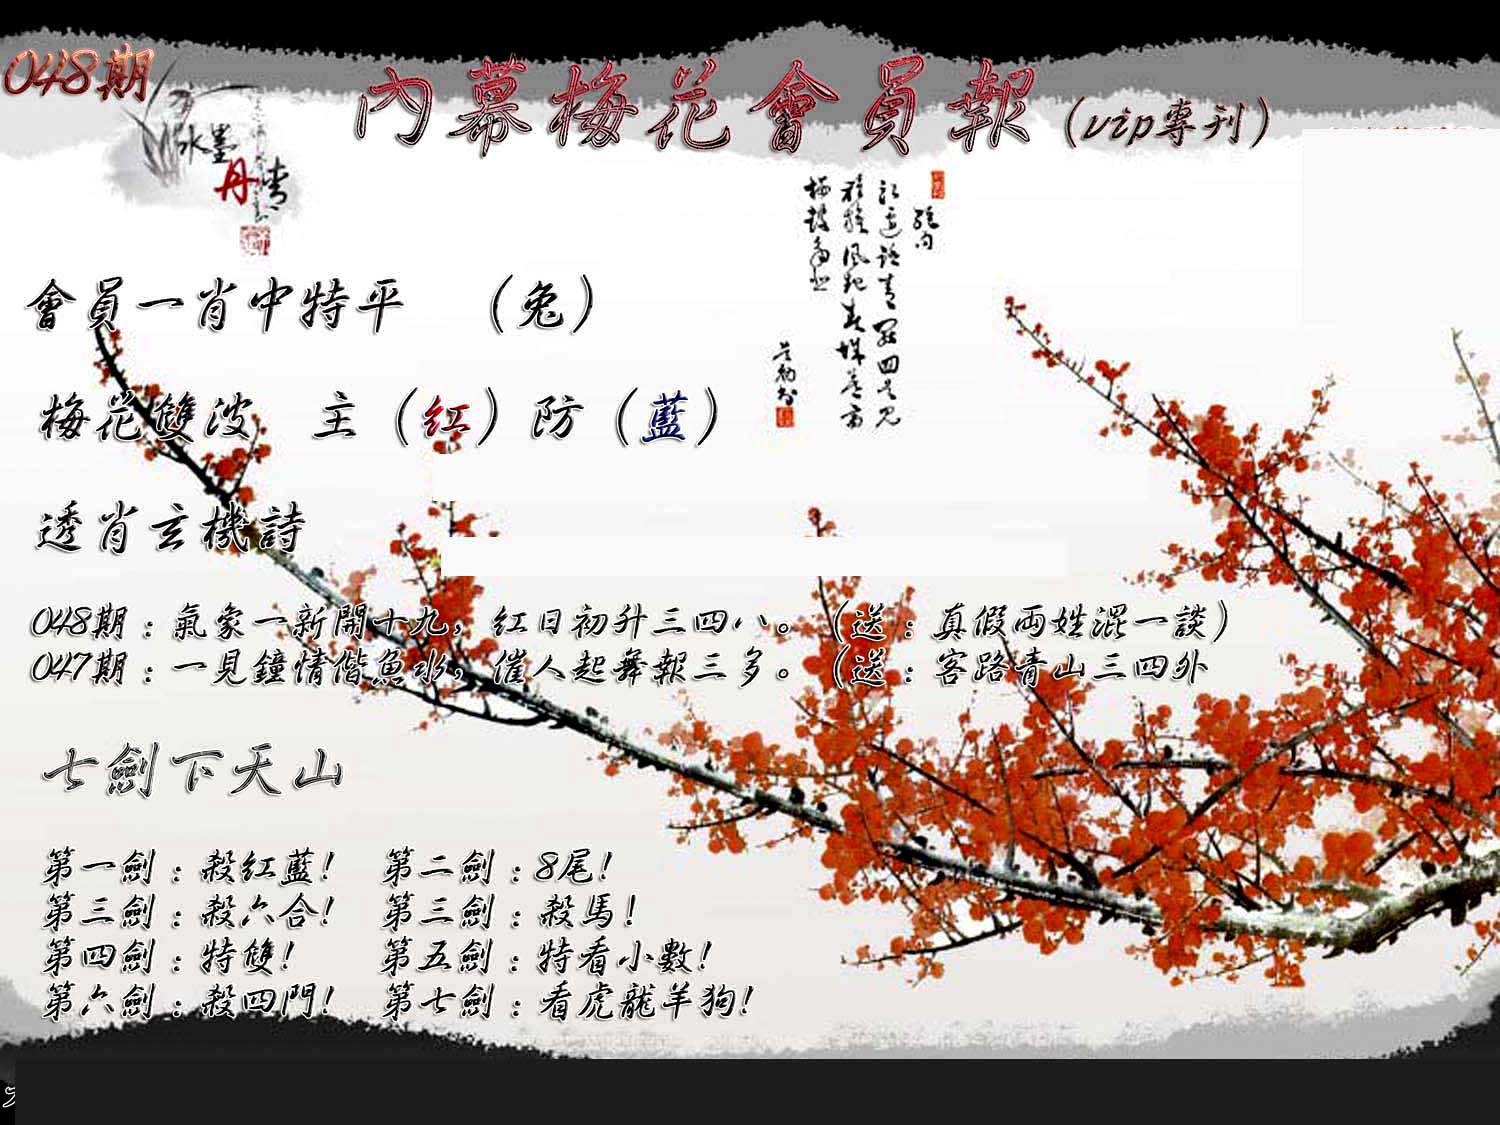 048期
內幕梅花會員報（vip專刊）
水墨
丹青
會員一肖中特平　（兔）
梅花雙波　主（紅）防（藍）
透肖玄機詩
048期：氣象一新開十九，紅日初升三四八。（送：真假両姓混一談）
047期：一見鐘情偕魚水，催人起舞報三多。（送：客路青山三四外
七劍下天山
第一劍：殺紅藍！　第二劍：8尾！
第三劍：殺六合！　第三劍：殺馬！
第四劍：特雙！　第五劍：特看小數！
第六劍：殺四門！　第七劍：看虎龍羊狗！